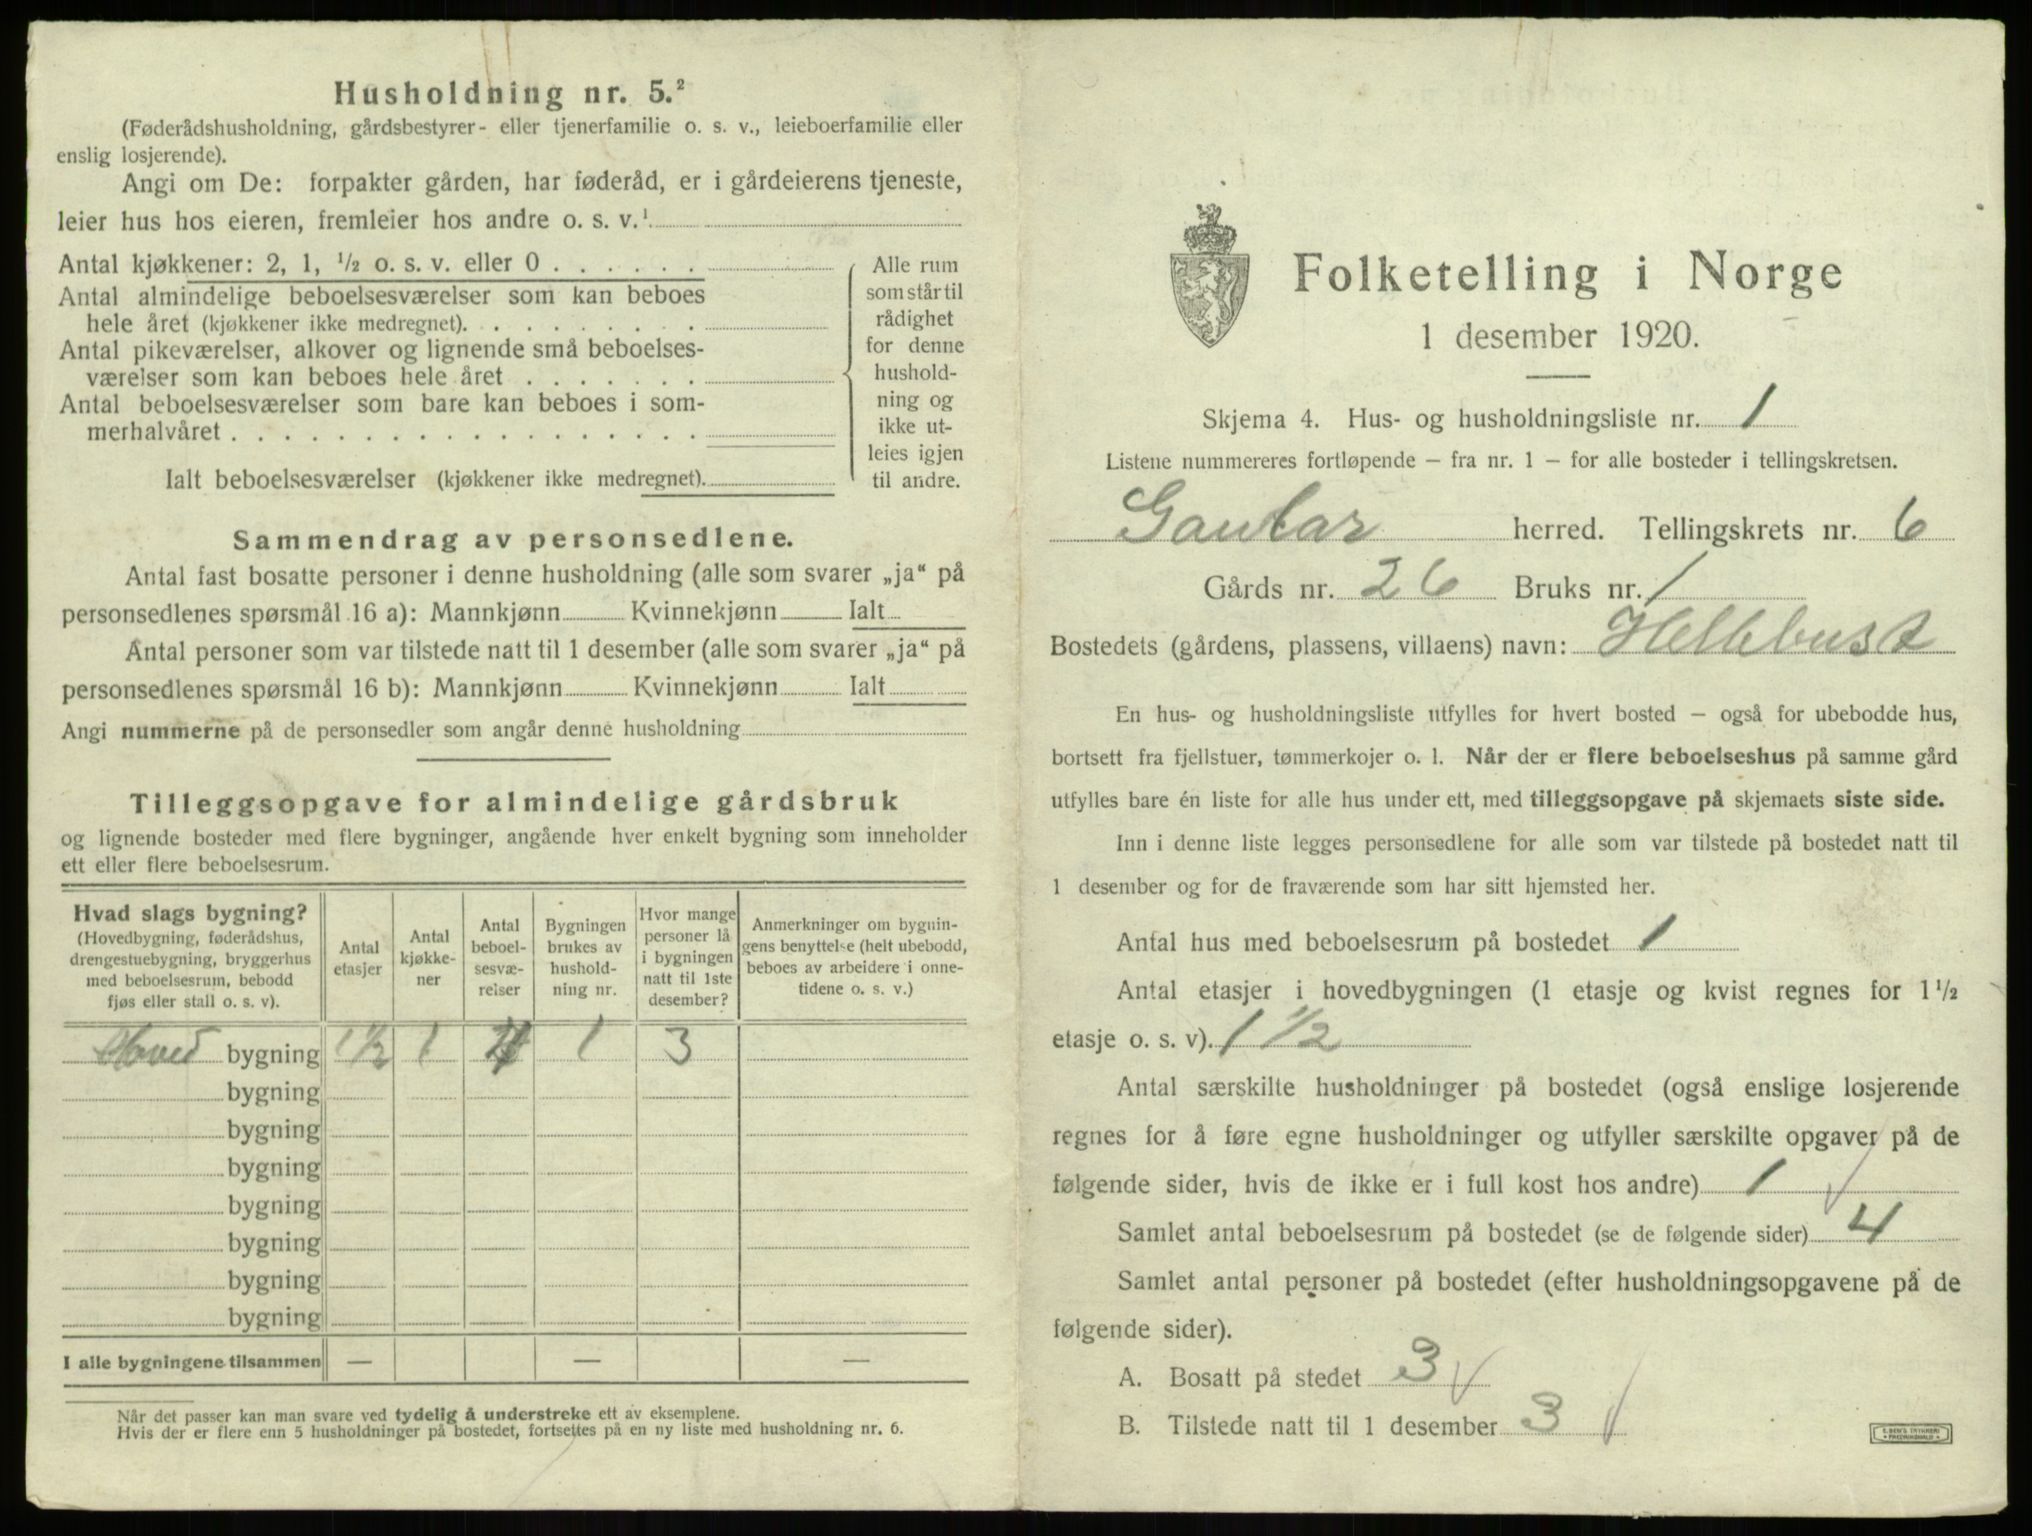 Husholdning nr. 5.²
(Føderådshusholdning, gårdsbestyrer- eller tjenerfamilie o. s. v., leieboerfamilie eller
enslig losjerende).
Angi om De: forpakter gården, har føderåd, er i gårdeierens tjeneste,
leier hus hos eieren, fremleier hos andre o. s. v.¹
Antal kjøkkener: 2, 1, ½ o. s. v. eller 0 . . . . . .
Antal almindelige beboelsesværelser som kan beboes
hele året (kjøkkener ikke medregnet). . . . . . . . .
Antal pikeværelser, alkover og lignende små beboelses-
værelser som kan beboes hele året . . . . . . .
Antal beboelsesværelser som bare kan beboes i som-
merhalvåret . . . . . . . . . . . . . . . . . .
Ialt beboelsesværelser (kjøkkener ikke medregnet).
Alle rum
som står til
rådighet
for denne
hushold-
ning og
ikke ut-
leies igjen
til andre.
Sammendrag av personsedlene.
Antal fast bosatte personer i denne husholdning (alle som svarer „ja“ på
personsedlenes spørsmål 16 a): Mannkjønn Kvinnekjønn Ialt
Antal personer som var tilstede natt til 1 desember (alle som svarer „ja“ på
personsedlenes spørsmål 16 b): Mannkjønn Kvinnekjønn Ialt
Angi nummerne på de personsedler som angår denne husholdning
Tilleggsopgave for almindelige gårdsbruk
og lignende bosteder med flere bygninger, angående hver enkelt bygning som inneholder
ett eller flere beboelsesrum.
Hvad slags bygning?
(Hovedbygning, føderådshus,
drengestuebygning, bryggerhus
med beboelsesrum, bebodd
fjøs eller stall o. s. v).
Antal
etasjer
Antal
kjøkke-
ner
Antal
beboel-
sesvæ-
relser
Bygningen
brukes av
hushold-
ning nr.
Hvor mange
personer lå
i bygningen
natt til 1ste
desember?
Anmerkninger om bygnin-
gens benyttelse (helt ubebodd,
beboes av arbeidere i onne-
tidene o. s. v.)
Hoved bygning 1½ 1 4 1 3
bygning
bygning
bygning
bygning
bygning
bygning
bygning
I alle bygningene tilsammen — — —
Når det passer kan man svare ved tydelig å understreke ett av eksemplene.
Hvis der er flere enn 5 husholdninger på bostedet, fortsettes på en ny liste med husholdning nr. 6.
Folketelling i Norge
1 desember 1920.
Skjema 4. Hus- og husholdningsliste nr. 1
Listene nummereres fortløpende – fra nr. 1 – for alle bosteder i tellingskretsen.
Gaular herred. Tellingskrets nr. 6
Gårds nr. 26 Bruks nr. 1
Bostedets (gårdens, plassens, villaens) navn: Hellebust
En hus- og husholdningsliste utfylles for hvert bosted – også for ubebodde hus,
bortsett fra fjellstuer, tømmerkojer o. l. Når der er flere beboelseshus på samme gård
utfylles bare én liste for alle hus under ett, med tilleggsopgave på skjemaets siste side.
Inn i denne liste legges personsedlene for alle som var tilstede på bostedet natt til
1 desember og for de fraværende som har sitt hjemsted her.
Antal hus med beboelsesrum på bostedet 1
Antal etasjer i hovedbygningen (1 etasje og kvist regnes for 1½
etasje o. s. v). 1 ½
Antal særskilte husholdninger på bostedet (også enslige losjerende
regnes for å føre egne husholdninger og utfyller særskilte opgaver på de
følgende sider, hvis de ikke er i full kost hos andre) 1
Samlet antal beboelsesrum på bostedet (se de følgende sider) 4
Samlet antal personer på bostedet (efter husholdningsopgavene på de
følgende sider).
A. Bosatt på stedet 3
B. Tilstede natt til 1 desember 3